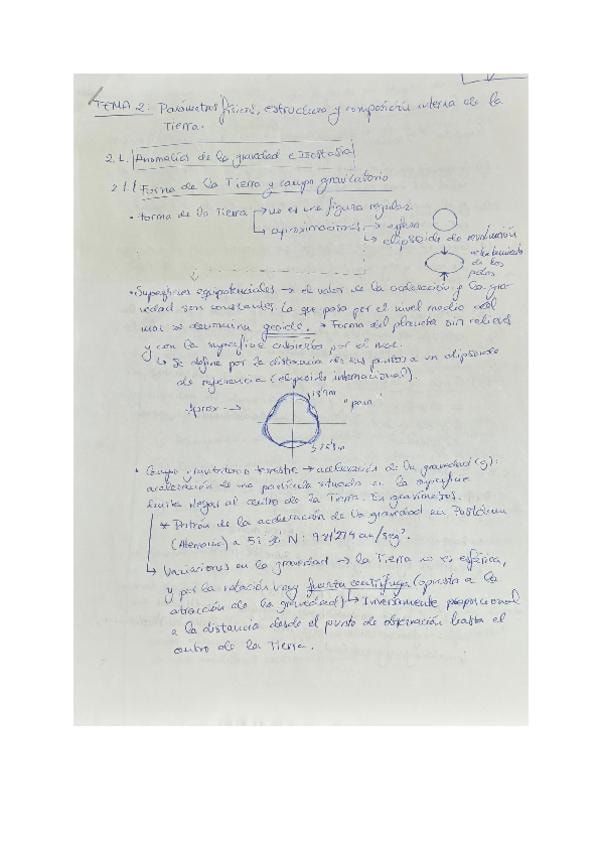 TEMA 2: Parámetros físicos, estructura y composición interna de la
Tierra.
2.1. Anomalías de la gravedad e Isostasia
2.1.1 Forma de la Tierra y campo gravitatorio
• Forma de la Tierra → no es una figura regular
↳ aproximaciones → esfera
↳ elipsoide de revolución
achatamiento
de los
polos
• Superficies equipotenciales → el valor de la aceleración y la gra-
vedad son constantes. La que pasa por el nivel medio del
mar se denomina geoide. * Forma del planeta sin relieves
y con la superficie cubierta por el mar.
↳ Se define por la distancia de sus puntos a un elipsoide
de referencia (elipsoide internacional).
Aprox →
"pera"
• Campo gravitatorio terrestre → aceleración de la gravedad (g):
aceleración de una partícula situada en la superficie
hasta llegar al centro de la Tierra. En gravímetros.
* Patrón de la aceleración de la gravedad en
(Alemania) a N: 981'274 cm/seg².
↳ Variaciones en la gravedad → la Tierra no es esférica,
y por la rotación hay fuerza centrífuga (opuesta a la
atracción de la gravedad) ↳ Inversamente proporcional
a la distancia desde el punto de observación hasta el
centro de la Tierra.